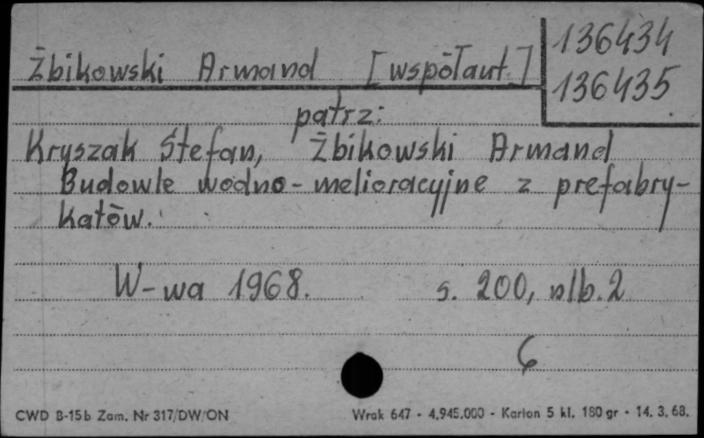 Żbikowski Armand [współaut.]
136434
136435
patrz:
Kryszak Stefan, Żbikowski Armand
Budowle wodno-melioracyjne z prefabry-
katów.
W-wa 1968. s. 200, nlb. 2
6
CWD B-15b Zam. Nr 317/DW/ON Wrak 647 - 4,945.000 - Karton 5 kl. 180 gr - 14. 3. 68.